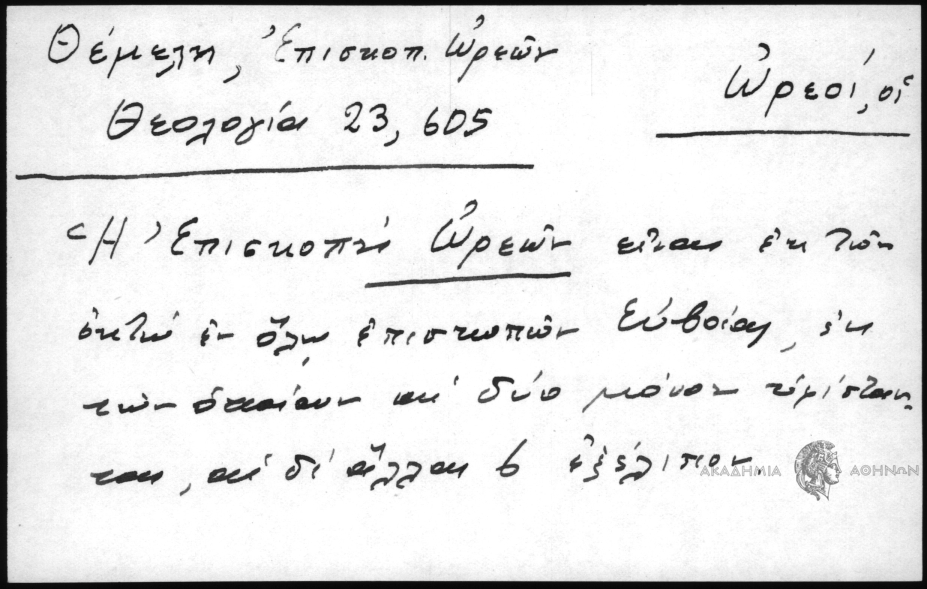 Θέμελη, Ἐπισκοπ. Ὠρεῶν
Θεολογία 23, 605
Ὠρεοί, οἱ
Ἡ Ἐπισκοπὴ Ὠρεῶν εἶναι ἐκ τῶν
ὀκτὼ ἐν ὅλῳ ἐπισκοπῶν Εὐβοίας, ἐκ
τῶν ὁποίων αἱ δύο μόνον ὑφίσταν
ται, αἱ δὲ ἄλλαι 6 ἐξέλιπον.
ΑΚΑΔΗΜΙΑ ΑΘΗΝΩΝ